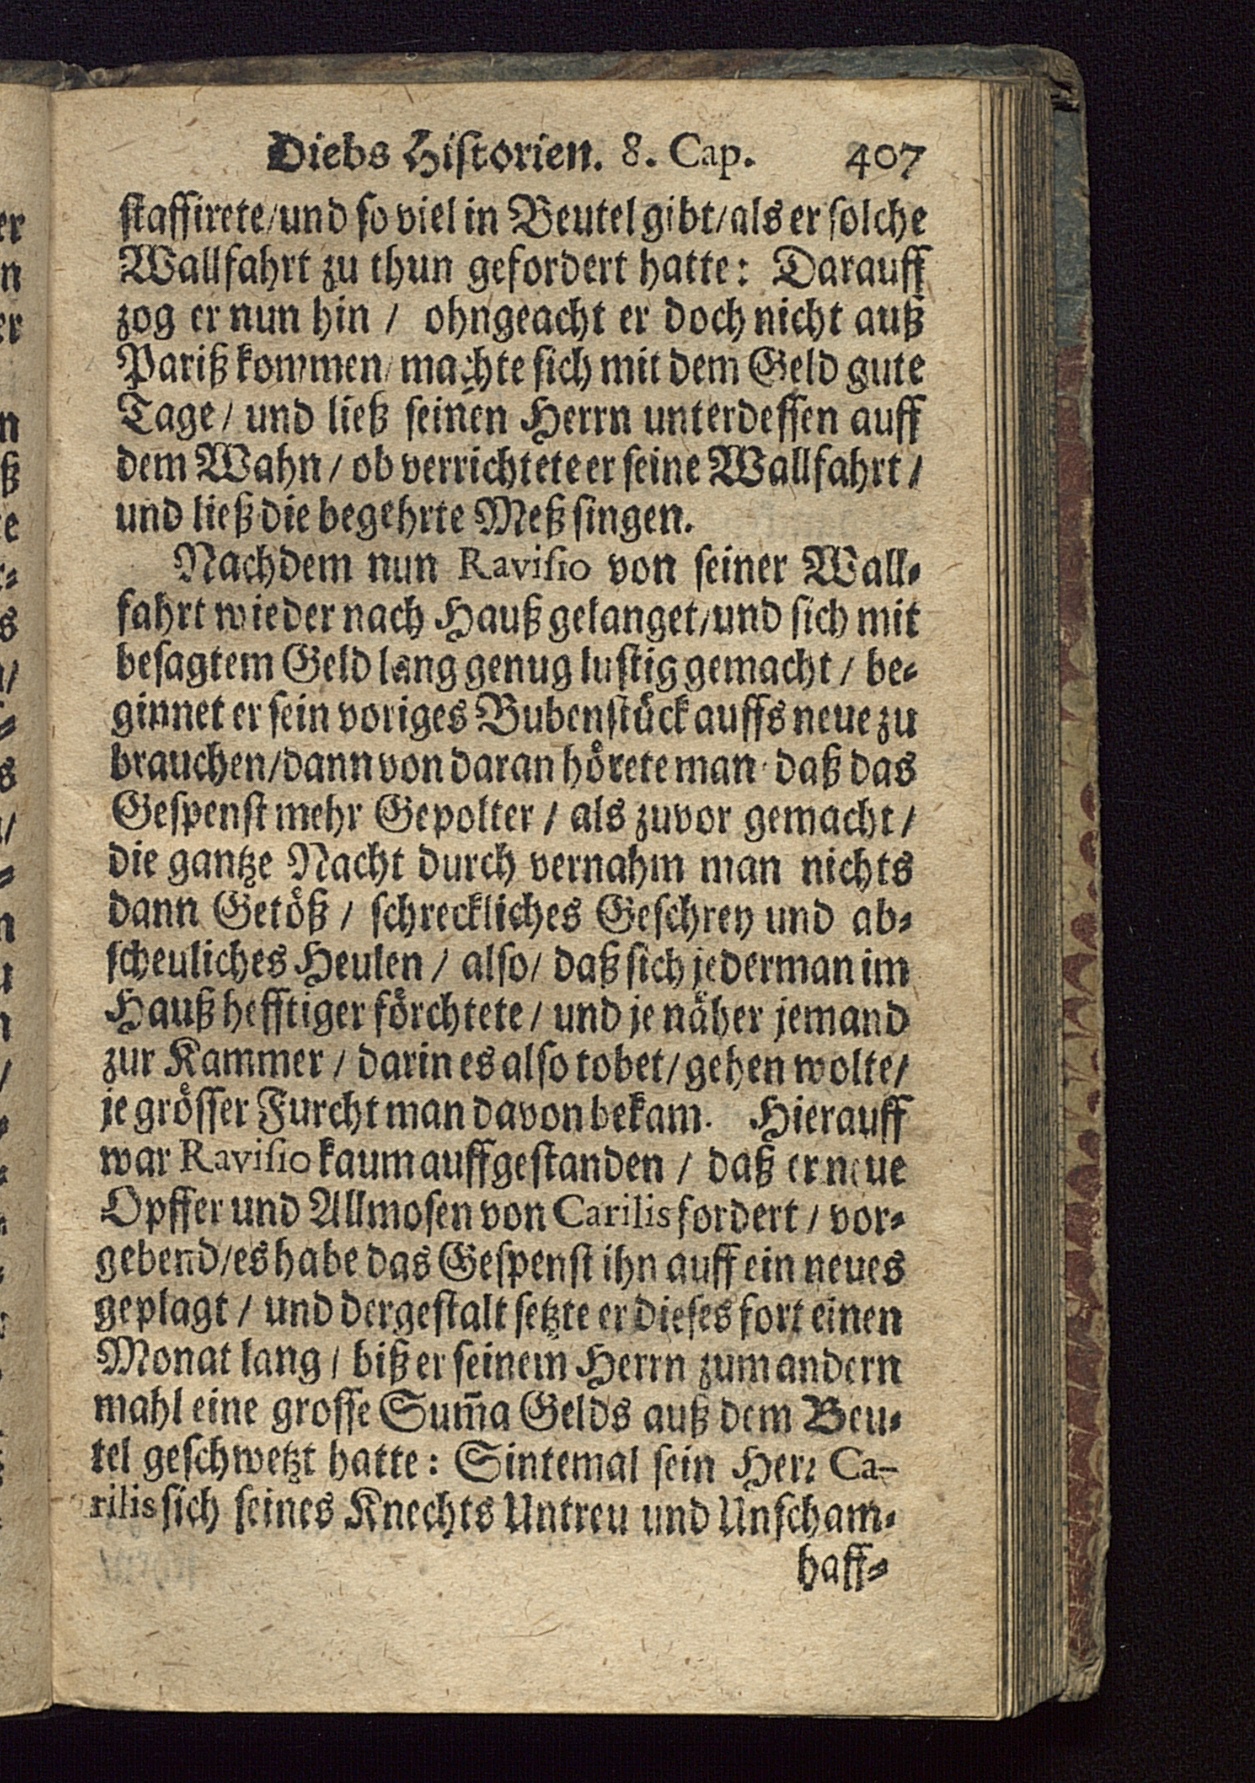 Diebs Historien. 8. Cap. 407
staffirete/und so viel in Beutel gibt/als er solche
Wallfahrt zu thun gefordert hatte: Darauff
zog er nun hin / ohngeacht er doch nicht auß
Pariß kommen/machte sich mit dem Geld gute
Tage/ und ließ seinen Herrn unterdessen auff
dem Wahn/ ob verrichtete er seine Wallfahrt/
und ließ die begehrte Meß singen.
Nachdem nun Ravisio von seiner Wall-
fahrt wieder nach Hauß gelanget/und sich mit
besagtem Geld lang genug lustig gemacht/ be-
ginnet er sein voriges Bubenstück auffs neue zu
brauchen/dann von daran hörete man daß das
Gespenst mehr Gepolter / als zuvor gemacht/
die gantze Nacht durch vernahm man nichts
dann Getöß / schreckliches Geschrey und ab-
scheuliches Heulen/ also/ daß sich jederman im
Hauß hefftiger förchtete/ und je näher jemand
zur Kammer/ darin es also tobet/gehen wolte/
je grösser Furcht man davon bekam. Hierauff
war Ravisio kaum auffgestanden/ daß er neue
Opffer und Allmosen von Carilis fordert/ vor-
gebend/es habe das Gespenst ihn auff ein neues
geplagt/ und dergestalt setzte er dieses fort einen
Monat lang/ biß er seinem Herrn zum andern
mahl eine grosse Sum̃a Gelds auß dem Beu-
tel geschwetzt hatte: Sintemal sein Herr Ca-
rilis sich seines Knechts Untreu und Unscham-
haff-
er
n
er
n
ß
e
s
s
n